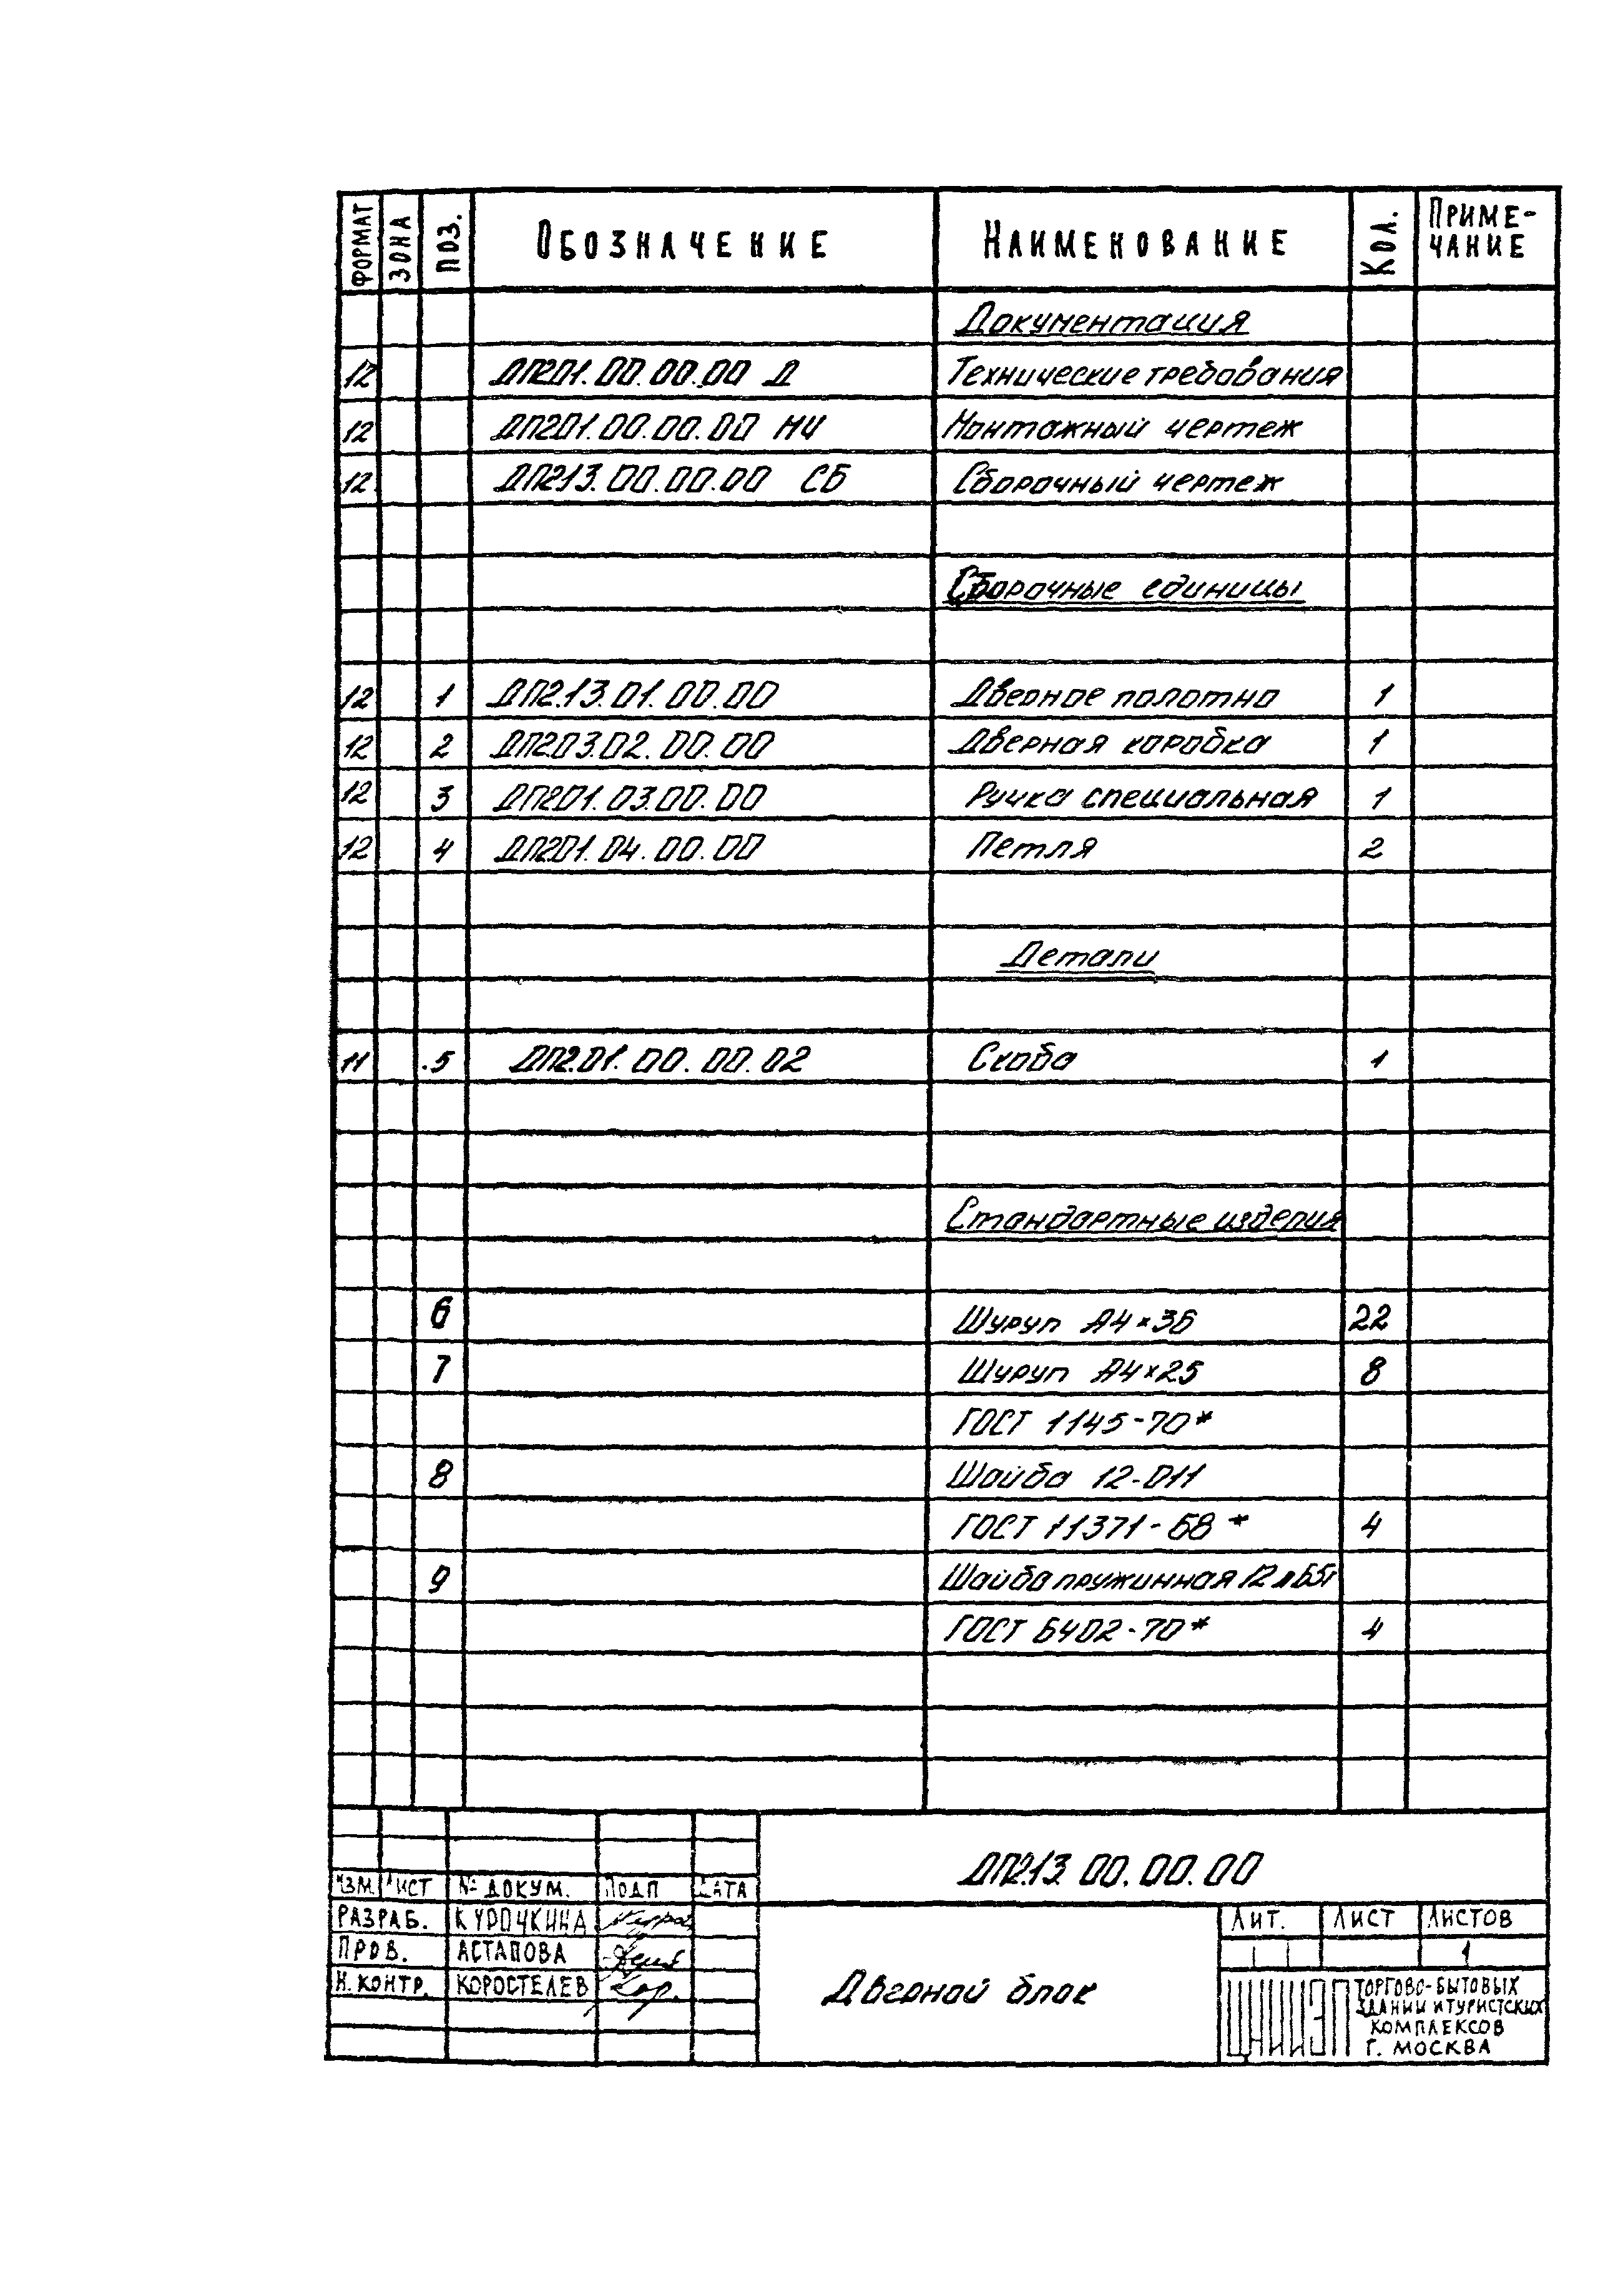 ФОРМАТ ЗОНА ПОЗ. ОБОЗНАЧЕНИЕ НАИМЕНОВАНИЕ КОЛ. ПРИМЕ-
ЧАНИЕ
Документация
12 ДП201.00.00.00 Д Технические требования
12 ДП201.00.00.00 МЧ Монтажный чертеж
12 ДП213.00.00.00 СБ Сборочный чертеж
Сборочные единицы
12 1 ДП2.13.01.00.00 Дверное полотно 1
12 2 ДП203.02.00.00 Дверная коробка 1
12 3 ДП201.03.00.00 Ручка специальная 1
12 4 ДП201.04.00.00 Петля 2
Детали
11 .5 ДП2.01.00.00.02 Скоба 1
Стандартные изделия
6 Шуруп А4×36 22
7 Шуруп А4×25 8
ГОСТ 1145-70*
8 Шайба 12-011
ГОСТ 11371-68* 4
9 Шайба пружинная 12 65г
ГОСТ 6402-70* 4
ДП2.13.00.00.00
ИЗМ. ЛИСТ № ДОКУМ. ПОДП ДАТА
РАЗРАБ. КУРОЧКИНА
ПРОВ. АСТАПОВА
Н.КОНТР. КОРОСТЕЛЕВ
Дверной блок
ЛИТ. ЛИСТ ЛИСТОВ
1
ЦНИИЭП ТОРГОВО-БЫТОВЫХ
ЗДАНИЙ И ТУРИСТСКИХ
КОМПЛЕКСОВ
Г. МОСКВА